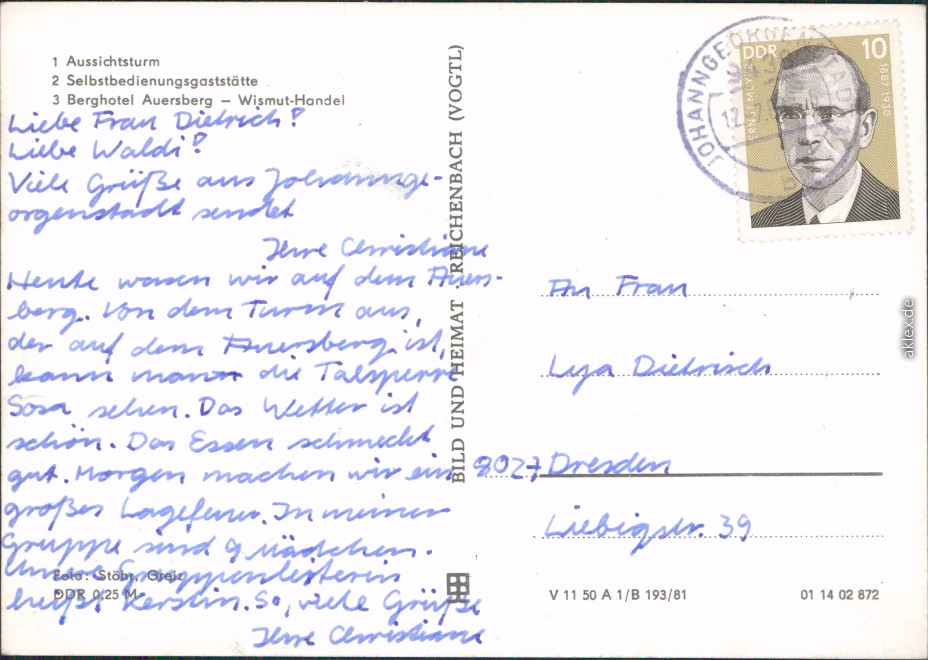 1 Aussichtsturm
2 Selbstbedienungsgaststätte
3 Berghotel Auersberg – Wismut-Handel
Liebe Frau Dietrich!
Liebe Waldi!
Viele Grüße aus Johannge-
orgenstadt sendet
Ihre Christiane
Heute waren wir auf dem Auers-
berg. Von dem Turm aus,
der auf dem Auersberg ist,
kann man die Talsperre
Sosa sehen. Das Wetter ist
schön. Das Essen schmeckt
gut. Morgen machen wir ein
großes Lagefeuer. In meiner
Gruppe sind 9 Mädchen.
Unsere Gruppenleiterin
heißt Kerstin. So, viele Grüße
Ihre Christiane
Foto: Stöhr, Greiz
DDR 0,25 M
BILD UND HEIMAT REICHENBACH (VOGTL)
JOHANNGEORGENSTADT
12.7.
DDR 10
ERNST MEYER
1887-1930
An Frau
Lya Dietrich
8027 Dresden
Liebigstr. 39
V 11 50 A 1/B 193/81
01 14 02 872
aklex.de